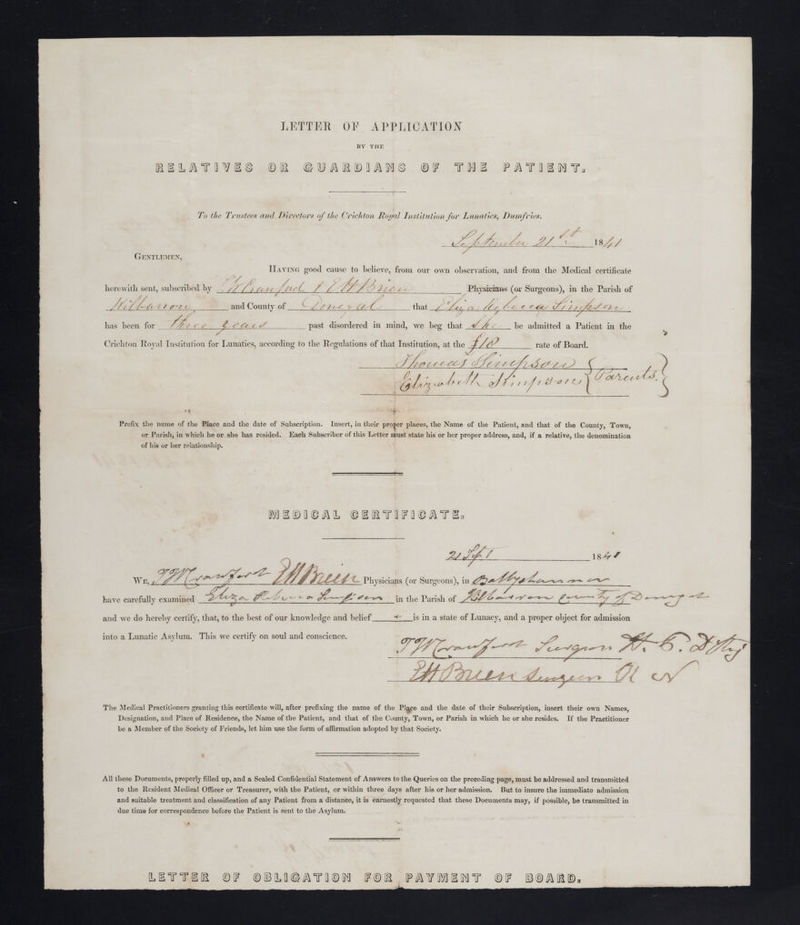 LETTER OF APPLICATION
BY THE
RELATIVES OR GUARDIANS OF THE PATIENT.
To the Trustees and Directors of the Crichton Royal Institution for Lunatics, Dumfries.
September 21st 1841
GENTLEMEN,
HAVING good cause to believe, from our own observation, and from the Medical certificate
herewith sent, subscribed by Crawford & E H Brien Physicians (or Surgeons), in the Parish of
Kilbarron and County of Donegal that Eliza Rebecca Simpson
has been for three years past disordered in mind, we beg that She be admitted a Patient in the
Crichton Royal Institution for Lunatics, according to the Regulations of that Institution, at the £10 rate of Board.
Thomas Simpson
Elizabeth Simpson } Parents
Prefix the name of the Place and the date of Subscription. Insert, in their proper places, the Name of the Patient, and that of the County, Town,
or Parish, in which he or she has resided. Each Subscriber of this Letter must state his or her proper address, and, if a relative, the denomination
of his or her relationship.
MEDICAL CERTIFICATE.
21 Sept 184
WE, Crawford E H Brien Physicians (or Surgeons), in Ballyshannon
have carefully examined Eliza Rebecca Simpson in the Parish of Kilbarron county of Donegal
and we do hereby certify, that, to the best of our knowledge and belief is in a state of Lunacy, and a proper object for admission
into a Lunatic Asylum. This we certify on soul and conscience.
Crawford Surgeon
E H Brien Surgeon
The Medical Practitioners granting this certificate will, after prefixing the name of the Place and the date of their Subscription, insert their own Names,
Designation, and Place of Residence, the Name of the Patient, and that of the County, Town, or Parish in which he or she resides. If the Practitioner
be a Member of the Society of Friends, let him use the form of affirmation adopted by that Society.
All these Documents, properly filled up, and a Sealed Confidential Statement of Answers to the Queries on the preceding page, must be addressed and transmitted
to the Resident Medical Officer or Treasurer, with the Patient, or within three days after his or her admission. But to insure the immediate admission
and suitable treatment and classification of any Patient from a distance, it is earnestly requested that these Documents may, if possible, be transmitted in
due time for correspondence before the Patient is sent to the Asylum.
LETTER OF OBLIGATION FOR PAYMENT OF BOARD.